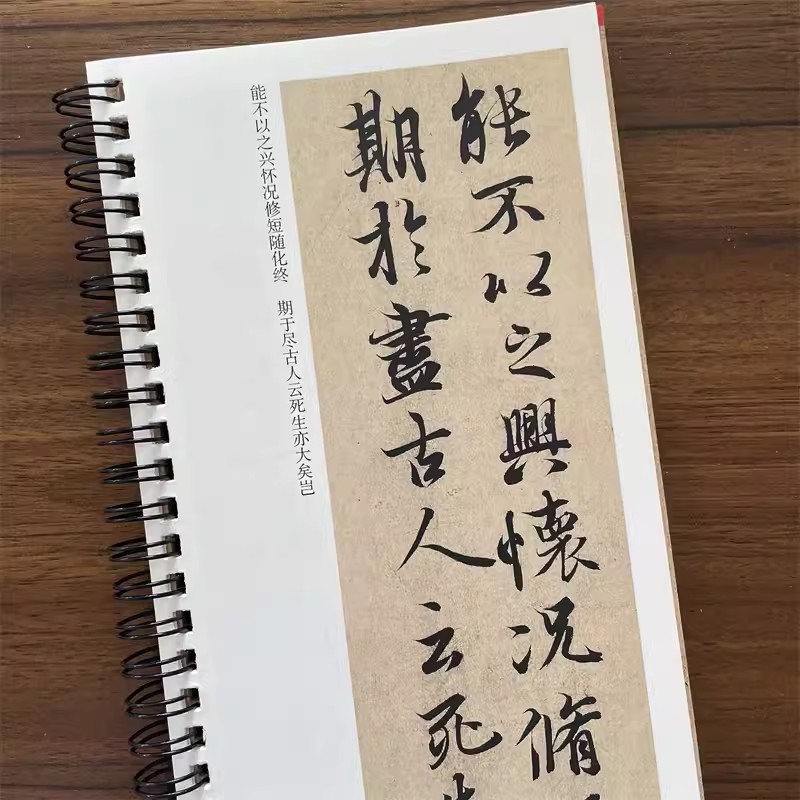 能不以之興懷况脩
期於盡古人云死
能不以之兴怀况修短随化终 期于尽古人云死生亦大矣岂